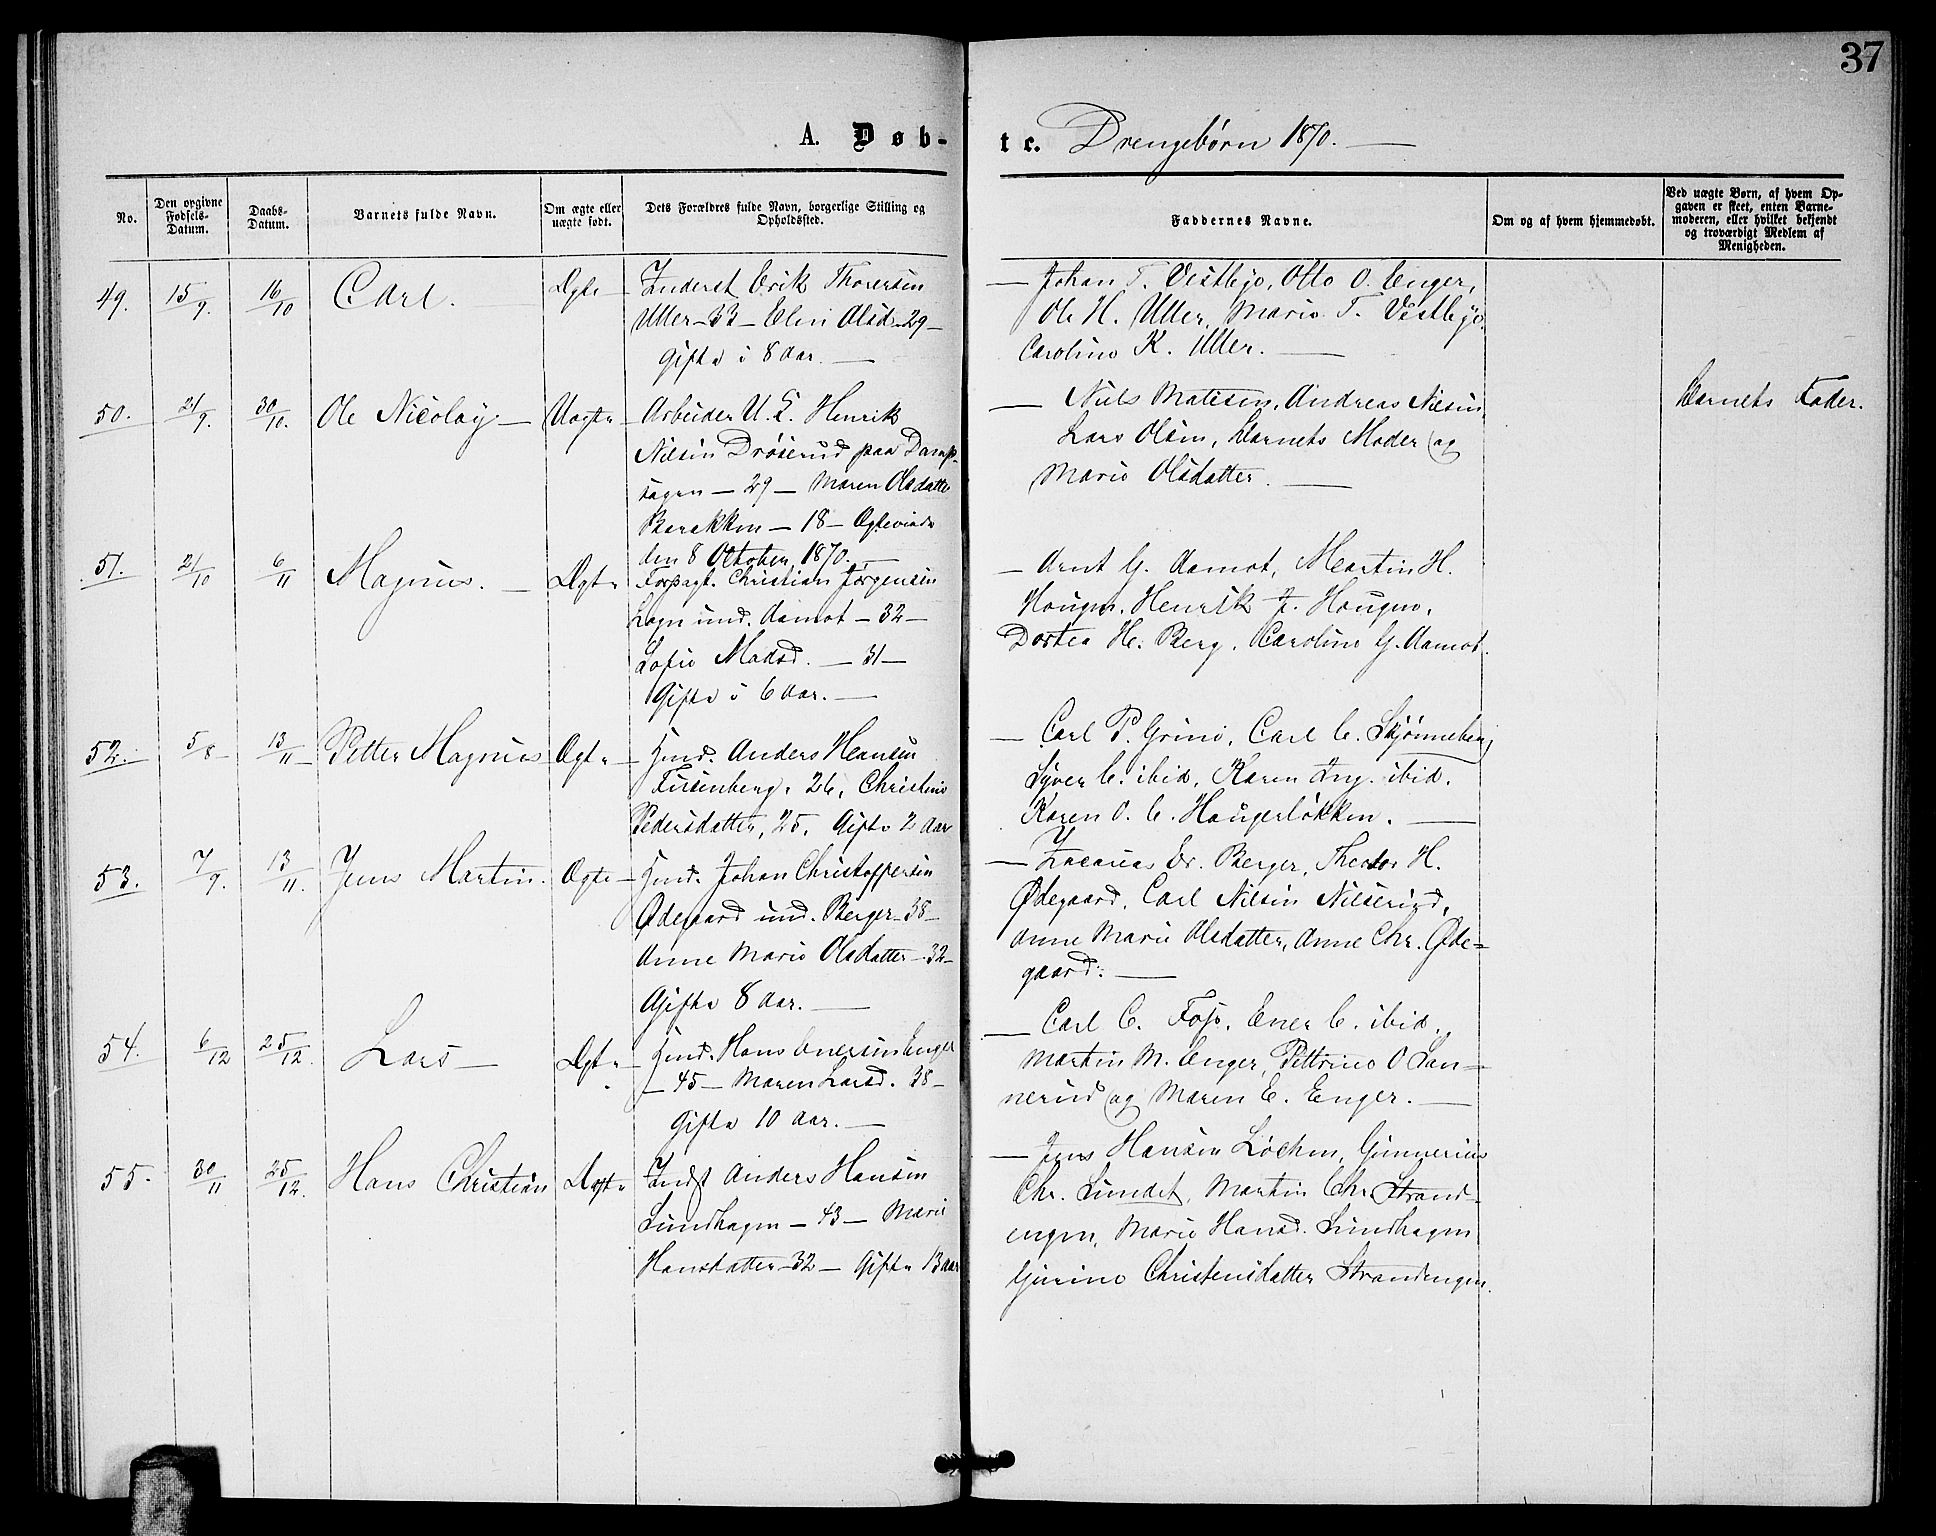 37
A. Døb-
te. Drengebørn 1870.
No.
Den opgivne Fødsels-Datum.
Daabs-Datum.
Barnets fulde Navn.
Om ægte eller uægte født.
Dets Forældres fulde Navn, borgerlige Stilling og Opholdssted.
Faddernes Navne.
Om og af hvem hjemmedøbt.
Ved uægte Børn, af hvem Opgaven er skeet, enten Barnemoderen, eller hvilket bekjendt og troværdigt Medlem af Menigheden.
49. 15/9. 16/10 Carl. Ægte
Inderst Erik Thoresen
Uller – 33 – Elen Olsd. 29 –
gifte i 8 Aar. –
– Johan T. Vestbye, Otto O. Enger,
Ole H. Uller, Marie T. Vestbye
Caroline K. Uller. –
50. 21/9. 30/10. Ole Nicolay – Uægte –
Arbeider U. K. Henrik
Nilsen Drøserud paa Damp-
sagen – 29 – Maren Olsdatter
Barakken – 18 – Ægteviede
den 8 October 1870. –
– Niels Matisen, Andreas Nilsen,
Lars Olsen, Barnets Moder og
Marie Olsdatter. –
Barnets Fader.
51. 21/10 6/11 Magnus. – Ægte
Forpagt. Christian Jørgensen
und. Aamot – 32 –
Sofie Madsd. – 31 –
Gifte i 6 Aar. –
– Arnt G. Aamot, Martin H.
Hougen, Henrik J. Hougen,
Dortea H. Berg, Caroline G. Aamot.
52. 5/8 13/11 Petter Magnus Ægte –
Hmd. Anders Hansen
Fusenberg, 26, Christine
Pedersdatter, 25, Gifte 2 Aar
– Carl P. Grine, Carl C. Skjønneberg
Syver C. ibid, Karen Ing. ibid.
Karen O. C. Haugerløkken. –
53. 7/9. 13/11. Jens Martin. Ægte –
Hmd. Johan Christoffersen
Ødegaard und. Berger – 38 –
Anne Marie Olsdatter – 32 –
Gifte 8 Aar. –
– Zacarias Er. Berger, Theodor H.
Ødegaard, Carl Nilsen Nilserud,
Anne Marie Olsdatter, Anne Chr. Øde=
gaard. –
54. 6/12 25/12. Lars – Ægte –
Hmd. Hans Enersen Enger
– 45 – Maren Larsd. 38 –
Gifte 10 Aar. –
– Carl C. Fojo, Ener C. ibid.
Martin M. Enger, Pettrine O San=
nerud og Maren E. Enger. –
55. 30/11 25/12. Hans Christian Ægte
Indst Anders Hansen
Lundhagen – 43 – Marie
Hansdatter – 32 – Gifte 13 Aar
– Jens Hansen Løchen, Gunnerius
Chr. Lundet, Martin Chr. Strand-
engen, Marie Hansd. Lundhagen
Gurine Christensdatter Strandengen.